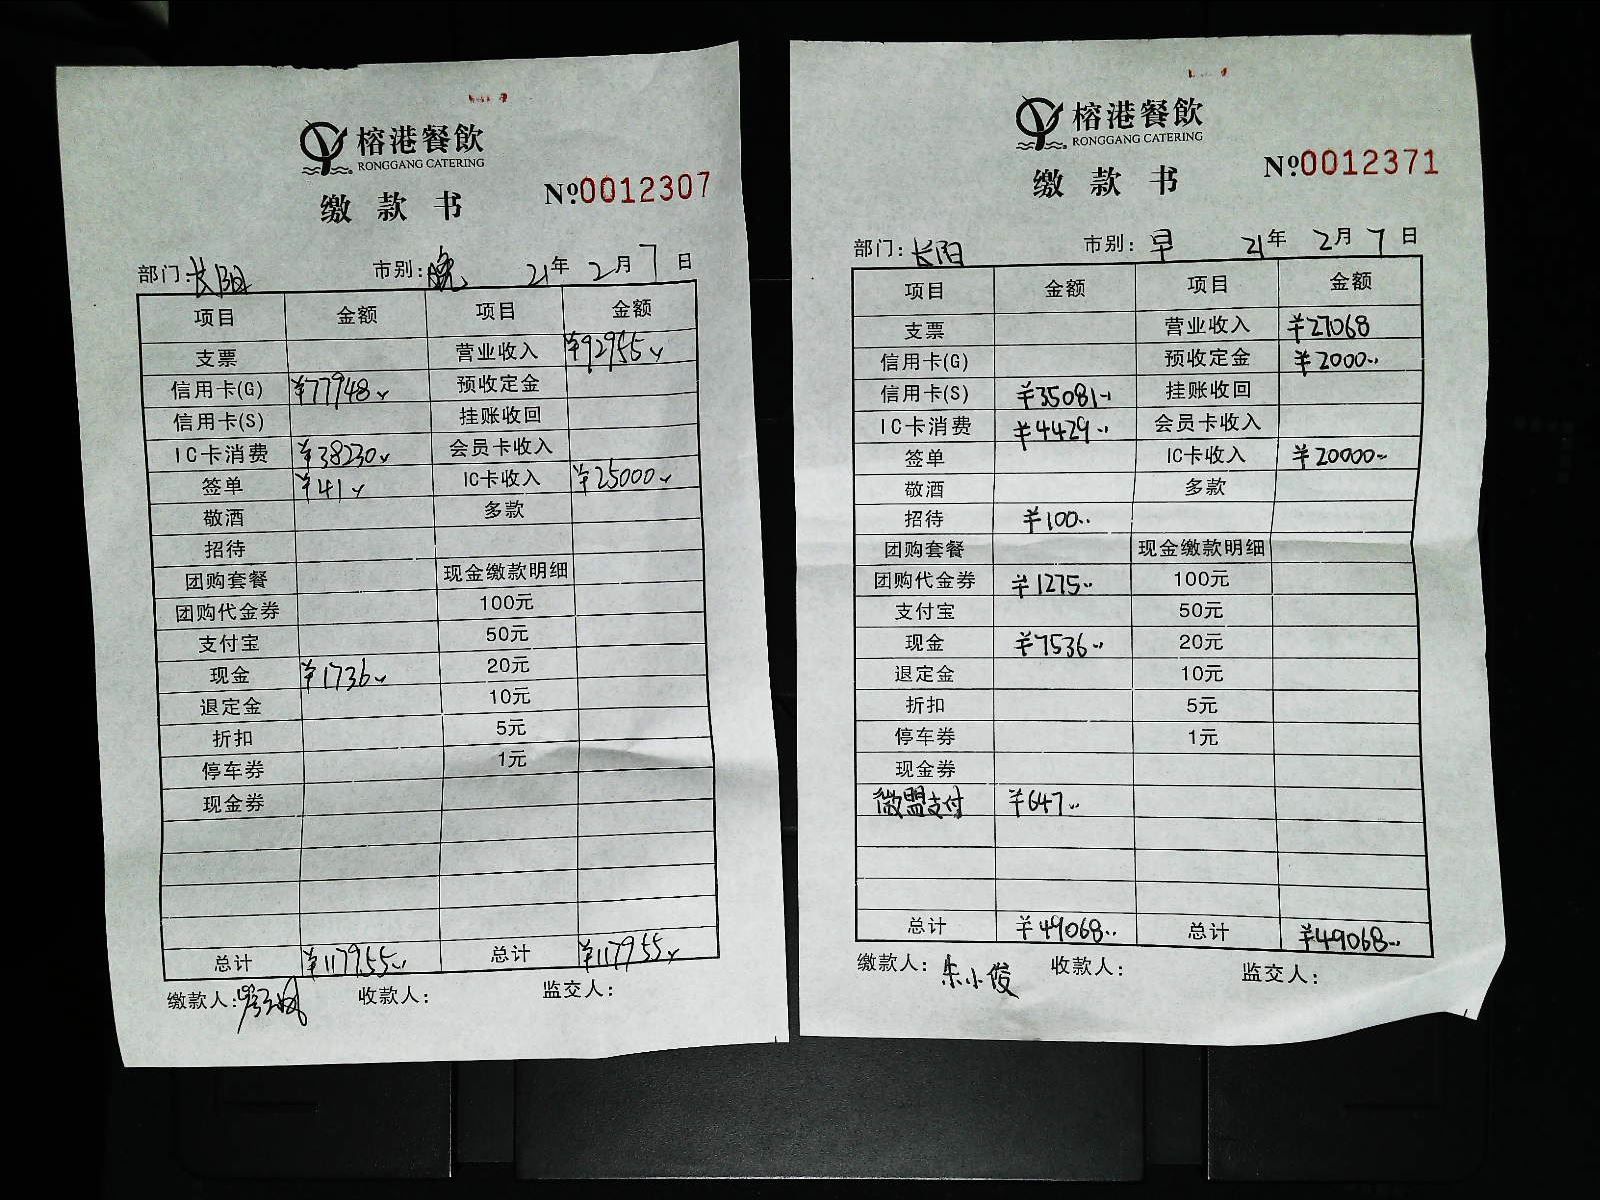 榕港餐飲
RONGGANG CATERING
缴款书
№0012307
部门:长阳 市别:晚 21年2月7日
项目 金额 项目 金额
支票 营业收入 ¥92955
信用卡(G) ¥77948 预收定金
信用卡(S) 挂账收回
IC卡消费 ¥38230 会员卡收入
签单 ¥41 IC卡收入 ¥25000
敬酒 多款
招待
团购套餐 现金缴款明细
团购代金券 100元
支付宝 50元
现金 ¥1736 20元
退定金 10元
折扣 5元
停车券 1元
现金券
总计 ¥117955 总计 ¥117955
缴款人: 收款人: 监交人:
榕港餐飲
RONGGANG CATERING
缴款书
№0012371
部门:长阳 市别:早 21年2月7日
项目 金额 项目 金额
支票 营业收入 ¥27068
信用卡(G) 预收定金 ¥2000
信用卡(S) ¥35081 挂账收回
IC卡消费 ¥4429 会员卡收入
签单 IC卡收入 ¥20000
敬酒 多款
招待 ¥100
团购套餐 现金缴款明细
团购代金券 ¥1275 100元
支付宝 50元
现金 ¥7536 20元
退定金 10元
折扣 5元
停车券 1元
现金券
微盟支付 ¥647
总计 ¥49068 总计 ¥49068
缴款人:朱小俊 收款人: 监交人: